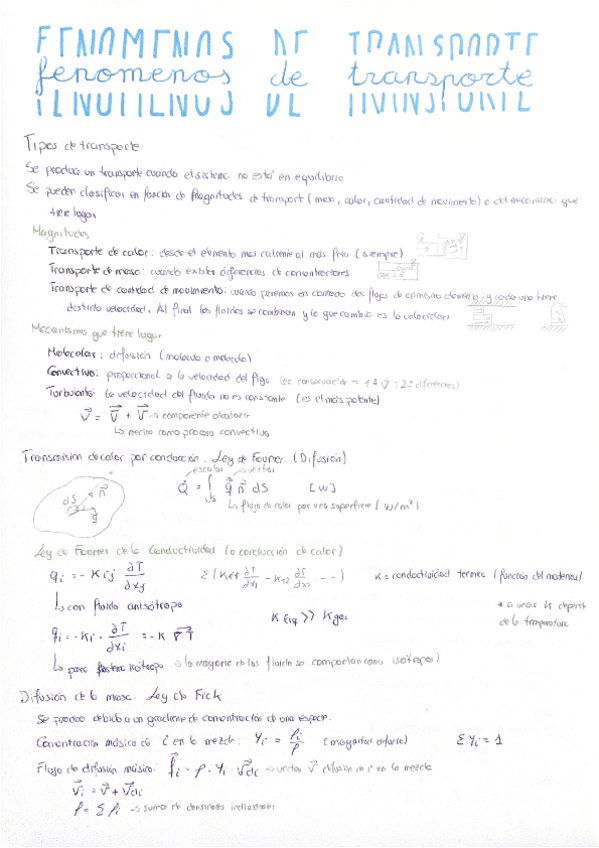 FENOMENOS DE TRANSPORTE
fenomenos de transporte
Tipos de transporte
Se produce un transporte cuando el sistema no está en equilibrio
Se pueden clasificar en función de Magnitudes de transport (masa, calor, cantidad de movimiento) o del mecanismo que
tiene lugar
Magnitudes
Transporte de calor: desde el elemento mas caliente al más frío (siempre)
Transporte de masa: cuando existen diferencias de concentraciones
Transporte de cantidad de movimiento: cuando ponemos en contacto dos flujos de mismo elemento y cada uno tiene
distinta velocidad. Al final los fluidos se combinan y lo que cambia es la velocidad
Mecanismo que tiene lugar
Molecular: difusión (molecula a molecula)
Convectivo: proporcional a la velocidad del flujo
Turbulento: la velocidad del fluido no es constante (es el mas potente)
→ componente aleatoria
↳ mecanismo como proceso convectivo
Transmision de calor por conducción. Ley de Fourier (Difusión)
escalar vector
Q̇ = ∫ₛ q⃗ n⃗ dS [W]
dS n⃗ q⃗
↳ flujo de calor por una superficie [W/m²]
Ley de Fourier de la Conductividad (o conducción de calor)
qᵢ = - Kᵢⱼ ∂T/∂xⱼ K = conductividad termica (función del material)
↳ con fluido anisótropo
K liq >> K gas
qᵢ = - Kᵢ · ∂T/∂xᵢ = - K ∇T
↳ para sistema isótropo → la mayoria de los fluidos se comportan como isotropos)
Difusión de la masa. Ley de Fick
Se produce debido a un gradiente de concentración de una especie.
Concentración másica de i en la mezcla: Yᵢ = ρᵢ/ρ ΣYᵢ = 1
Flujo de difusión másico: j⃗ᵢ = ρ · Yᵢ · V⃗dᵢ → vector V⃗ difusion de i en la mezcla
V⃗ᵢ = V⃗ + V⃗dᵢ
ρ = Σρᵢ → suma de densidades individuales